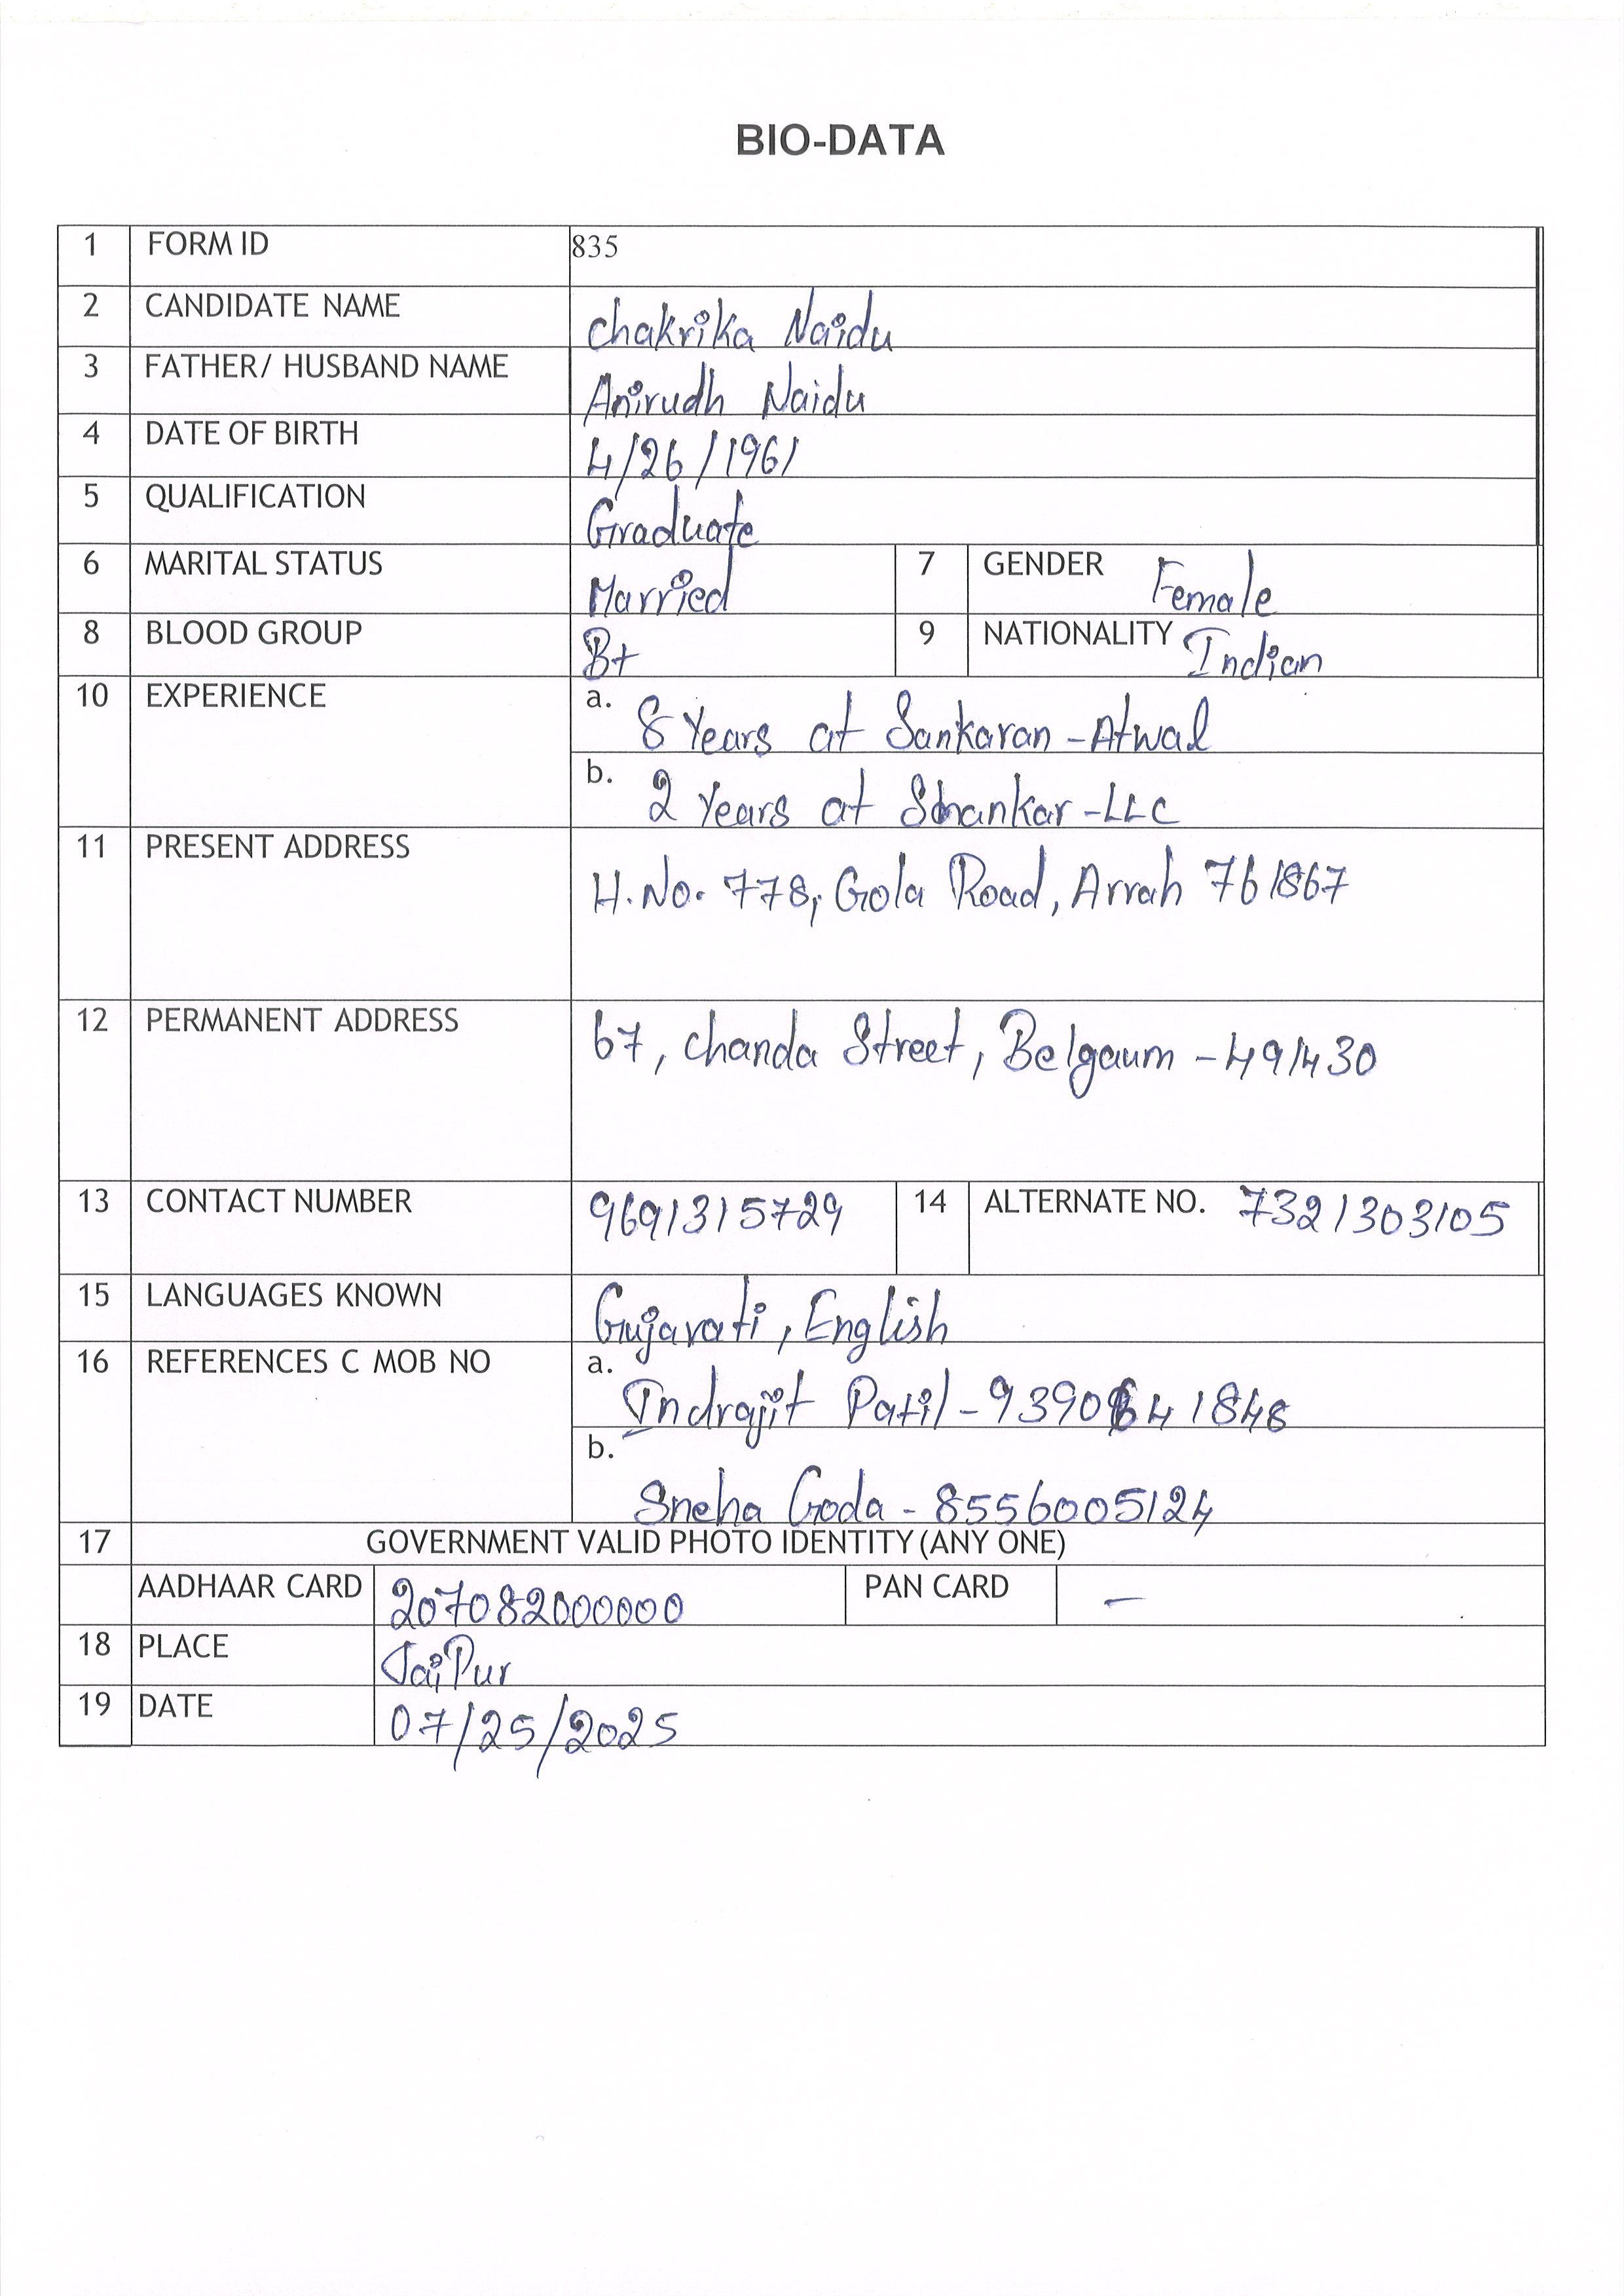 BIO-DATA
1 FORM ID 835
2 CANDIDATE NAME Chakrika Naidu
3 FATHER/ HUSBAND NAME Anirudh Naidu
4 DATE OF BIRTH 4/26/1961
5 QUALIFICATION Graduate
6 MARITAL STATUS Married 7 GENDER Female
8 BLOOD GROUP B+ 9 NATIONALITY Indian
10 EXPERIENCE a. 8 Years at Sankaran-Atwal
b. 2 Years at Shankar-LLC
11 PRESENT ADDRESS H.No. 778, Gola Road, Arrah 761867
12 PERMANENT ADDRESS 67, Chanda Street, Belgaum - 491430
13 CONTACT NUMBER 9691315729 14 ALTERNATE NO. 7321303105
15 LANGUAGES KNOWN Gujarati, English
16 REFERENCES C MOB NO a. Indrajit Patil - 9390641848
b. Sneha Goda - 8556005124
17 GOVERNMENT VALID PHOTO IDENTITY (ANY ONE)
AADHAAR CARD 207082000000 PAN CARD -
18 PLACE Jaipur
19 DATE 07/25/2025